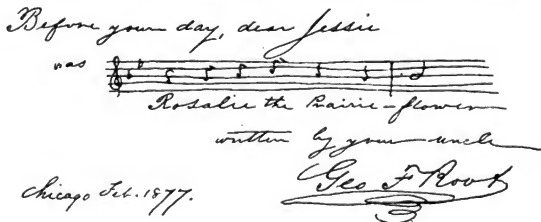 Before your day, dear Jessie
was
Rosalie the Prairie-flower
written by your uncle
Geo F Root
Chicago Feb. 1877.